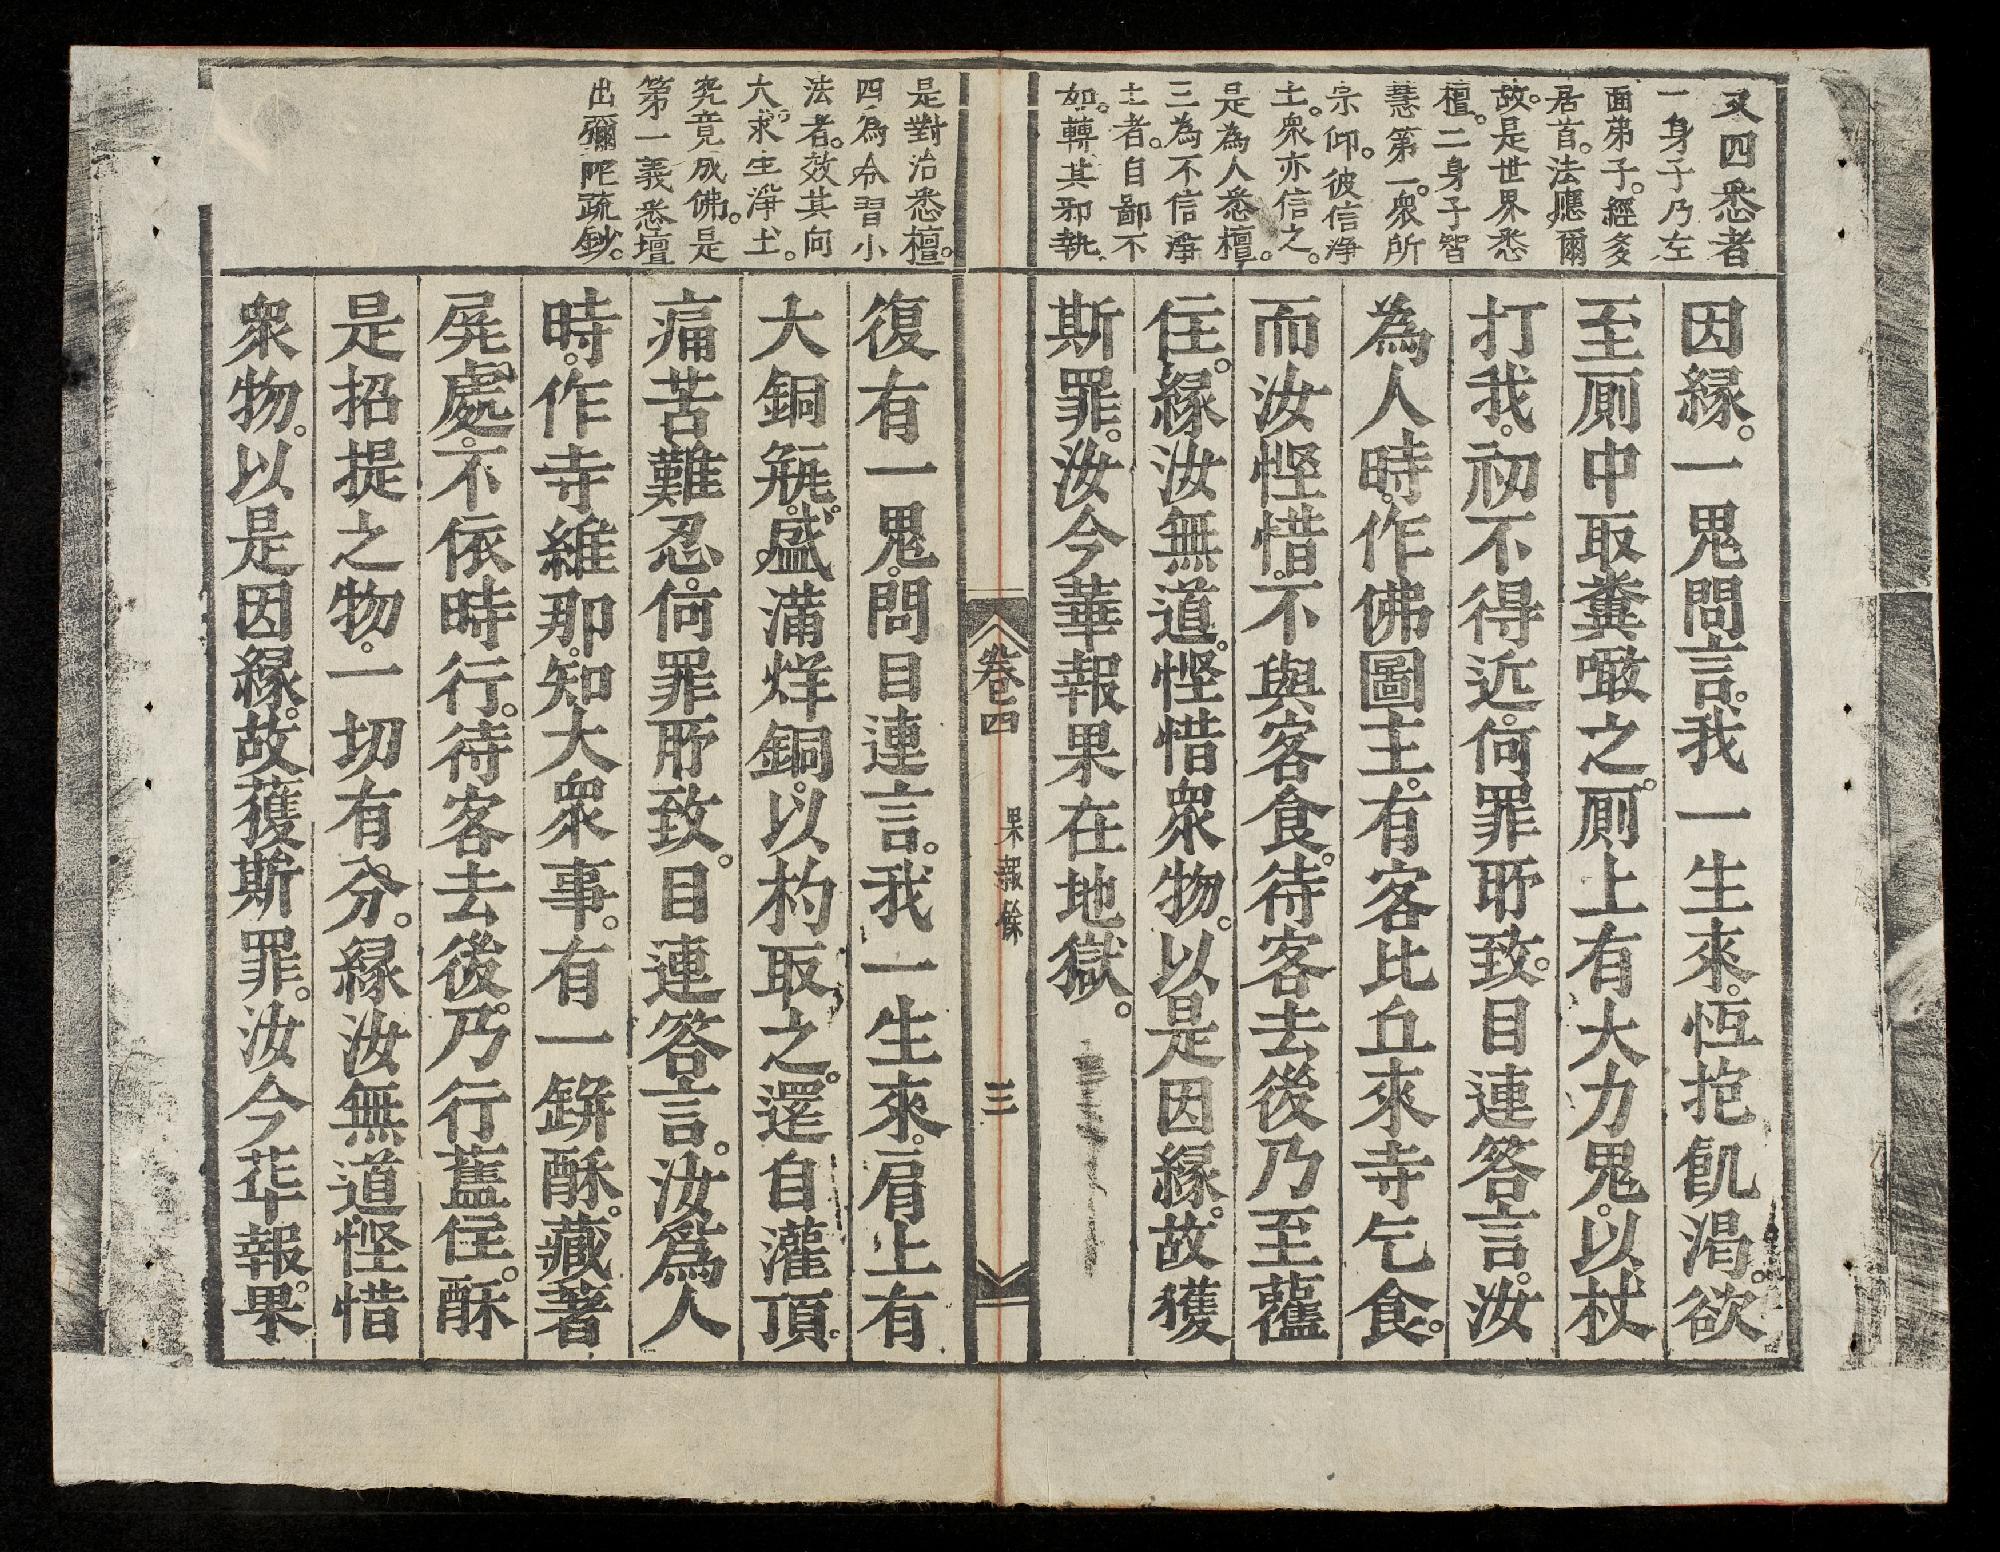 又四悉者
一身子乃左
面弟子。經多
居首。法應爾
故。是世界悉
檀。二身子智
慧第一。衆所
宗仰。彼信淨
土。衆亦信之。
是為人悉檀。
三為不信淨
土者。自鄙不
如。轉其邪執
因緣。一鬼問言。我一生來。恆抱飢渴。欲
至厠中取糞噉之。厠上有大力鬼。以杖
打我。初不得近。何罪所致。目連答言。汝
為人時。作佛圖主。有客比丘來寺乞食。
而汝慳惜。不與客食。待客去後乃至舊
住。緣汝無道。慳惜衆物。以是因緣。故獲
斯罪。汝今華報果在地獄。
卷四 果報餘 三
是對治悉檀。
四為令習小
法者。效其向
大。求生淨土。
究竟成佛。是
第一義悉壇
出彌陀疏鈔。
復有一鬼。問目連言。我一生來。肩上有
大銅瓶。盛滿烊銅。以杓取之。還自灌頂。
痛苦難忍。何罪所致。目連答言。汝爲人
時。作寺維那。知大衆事。有一缾酥。藏著
屏處。不依時行。待客去後。乃行舊住。酥
是招提之物。一切有分。緣汝無道慳惜
衆物。以是因緣。故獲斯罪。汝今華報。果